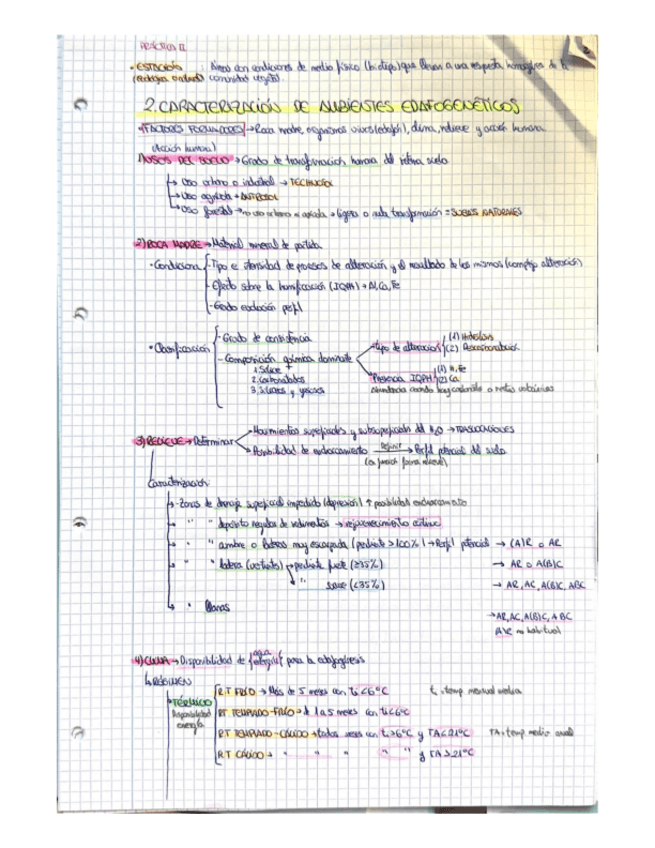 PRÁCTICA II
• ESTACIÓN : Área con condiciones de medio físico (biotipo) que llevan a una respuesta homogénea de la
comunidad vegetal
2. CARACTERIZACIÓN DE AMBIENTES EDAFOGENÉTICOS
• FACTORES FORMADORES → Roca madre, organismos vivos (edafon), clima, relieve y acción humana
(Acción humana)
1) USOS DEL SUELO → Grado de transformación humana del suelo
↳ Uso urbano o industrial → TECHNOSOL
↳ Uso agrícola → ANTROSOL
↳ Uso forestal → no uso urbano ni agrícola → ligera o nula transformación = SUELOS NATURALES
2) ROCA MADRE → Material mineral de partida
• Condiciona - Tipo e intensidad de procesos de alteración y el resultado de los mismos (complejo alteración)
- Efecto sobre la humificación (IQPH) → Al, Ca, Fe
- Grado evolución perfil
• Clasificación - Grado de consistencia
- Composición química dominante
1. Sílice +
2. Carbonatados
3. Sulfatos y yesosos
Tipo de alteración (1) Hidrólisis
(2) Descarbonatación
Presencia IQPH (1) Al, Fe
(2) Ca
3) RELIEVE → Determinar
Movimientos superficiales y subsuperficiales del H2O → TRASLOCACIONES
Posibilidad de encharcamiento Definir → Perfil potencial del suelo
Caracterización
↳ - Zonas de drenaje superficial impedido (depresión) ↑ posibilidad encharcamiento
↳ " " depósito regular de sedimentos → rejuvenecimiento continuo
↳ " " cumbre o laderas muy escarpada (pendiente > 100%) → Perfil potencial → (A)R o AR
↳ " " ladera (vertientes) → pendiente fuerte (≥35%) → AR o A(B)C
↳ " suave (<35%) → AR, AC, A(B)C, ABC
↳ " llanas
→ AR, AC, A(B)C, ABC
(A)C no habitual
4) CLIMA → Disponibilidad de agua energía para la edafogénesis
↳ RÉGIMEN
TÉRMICO
Disponibilidad
energía
R.T FRÍO → Más de 5 meses con ti<6ºC tᵢ = temp mensual media
RT TEMPLADO-FRÍO → de 1 a 5 meses con ti<6ºC
RT TEMPLADO-CÁLIDO → todos meses con ti>6ºC y TA<21ºC TA = temp media anual
RT CÁLIDO → " " " " " y TA>21ºC